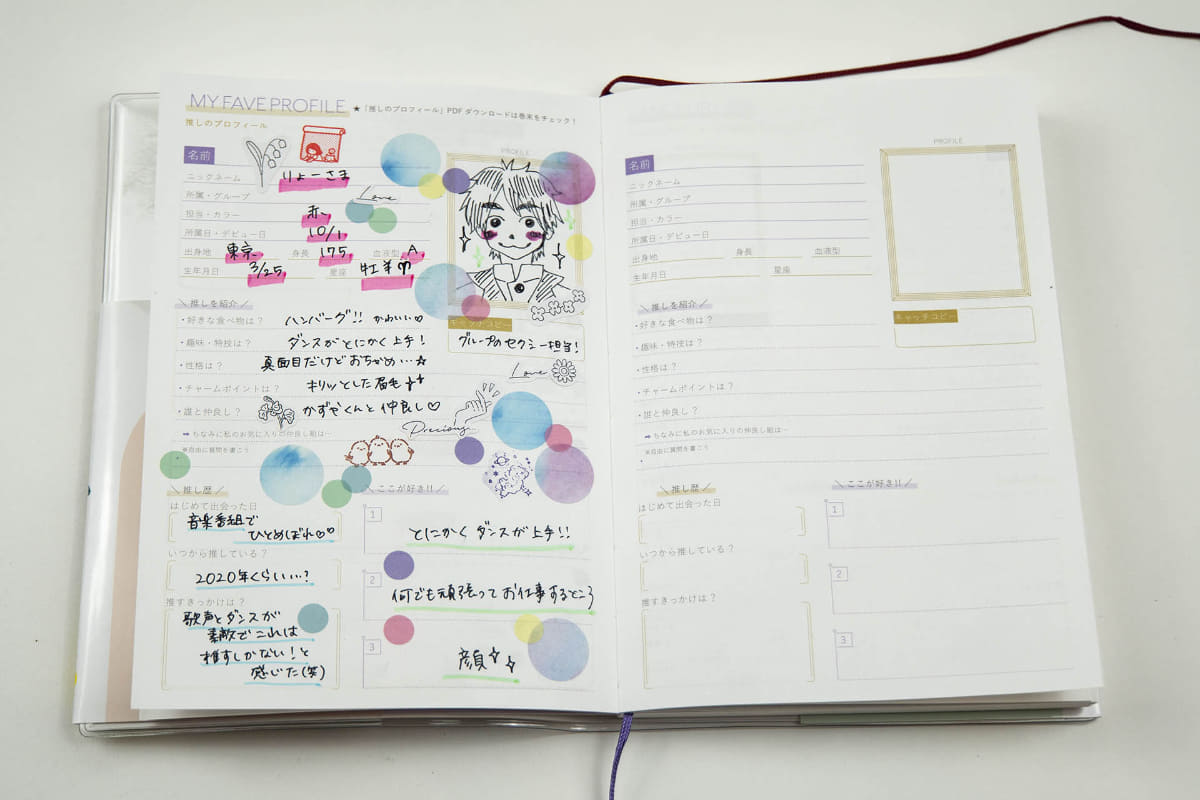 MY FAVE PROFILE ★「推しのプロフィール」PDFダウンロードは巻末をチェック!
推しのプロフィール
名前
ニックネーム りょーさま
所属・グループ
Love
担当・カラー 赤
所属日・デビュー日 10/1
出身地 東京 身長 175 血液型 A
生年月日 3/25 星座 牡羊♡
キャッチコピー
グループのセクシー担当!
\推しを紹介/
・好きな食べ物は? ハンバーグ!! かわいい♡
・趣味・特技は? ダンスがとにかく上手!
・性格は? 真面目だけどおちゃめ…☆
・チャームポイントは? キリッとした眉毛
・誰と仲良し? かずやくんと仲良し♡
Love
Precious
➡ちなみに私のお気に入りの仲良し組は…
※自由に質問を書こう
\推し歴/
はじめて出会った日
音楽番組で
ひとめぼれ♡♡
いつから推している?
2020年くらい…?
推すきっかけは?
歌声とダンスが
素敵でこれは
推すしかない!と
感じた(笑)
\ここが好き!!/
1
とにかくダンスが上手!!
2
何でも頑張ってお仕事するところ
3
顔
PROFILE
名前
ニックネーム
所属・グループ
担当・カラー
所属日・デビュー日
出身地 身長 血液型
生年月日 星座
キャッチコピー
\推しを紹介/
・好きな食べ物は?
・趣味・特技は?
・性格は?
・チャームポイントは?
・誰と仲良し?
➡ちなみに私のお気に入りの仲良し組は…
※自由に質問を書こう
\推し歴/
はじめて出会った日
いつから推している?
推すきっかけは?
\ここが好き!!/
1
2
3